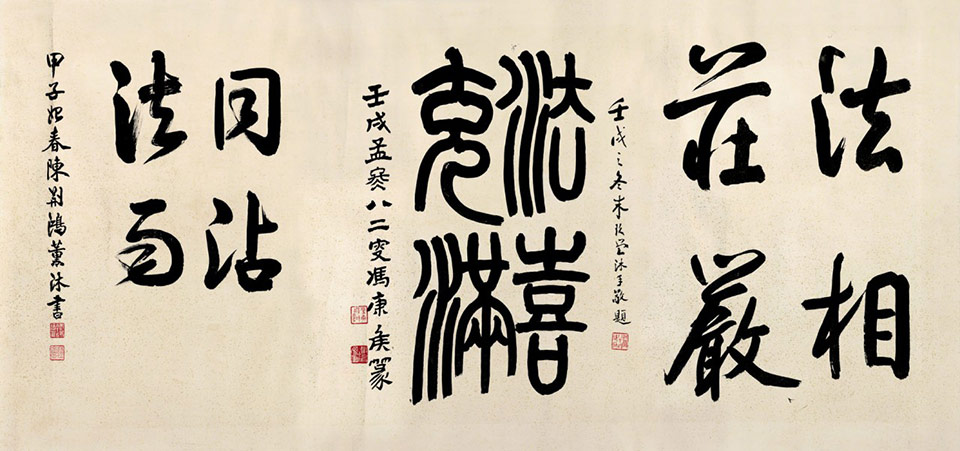 法相
莊嚴
壬戌之冬 沐手敬題
法喜
充滿
壬戌孟冬八二叟馮康侯篆
同沾
法雨
甲子始春陳荊鴻薰沐書